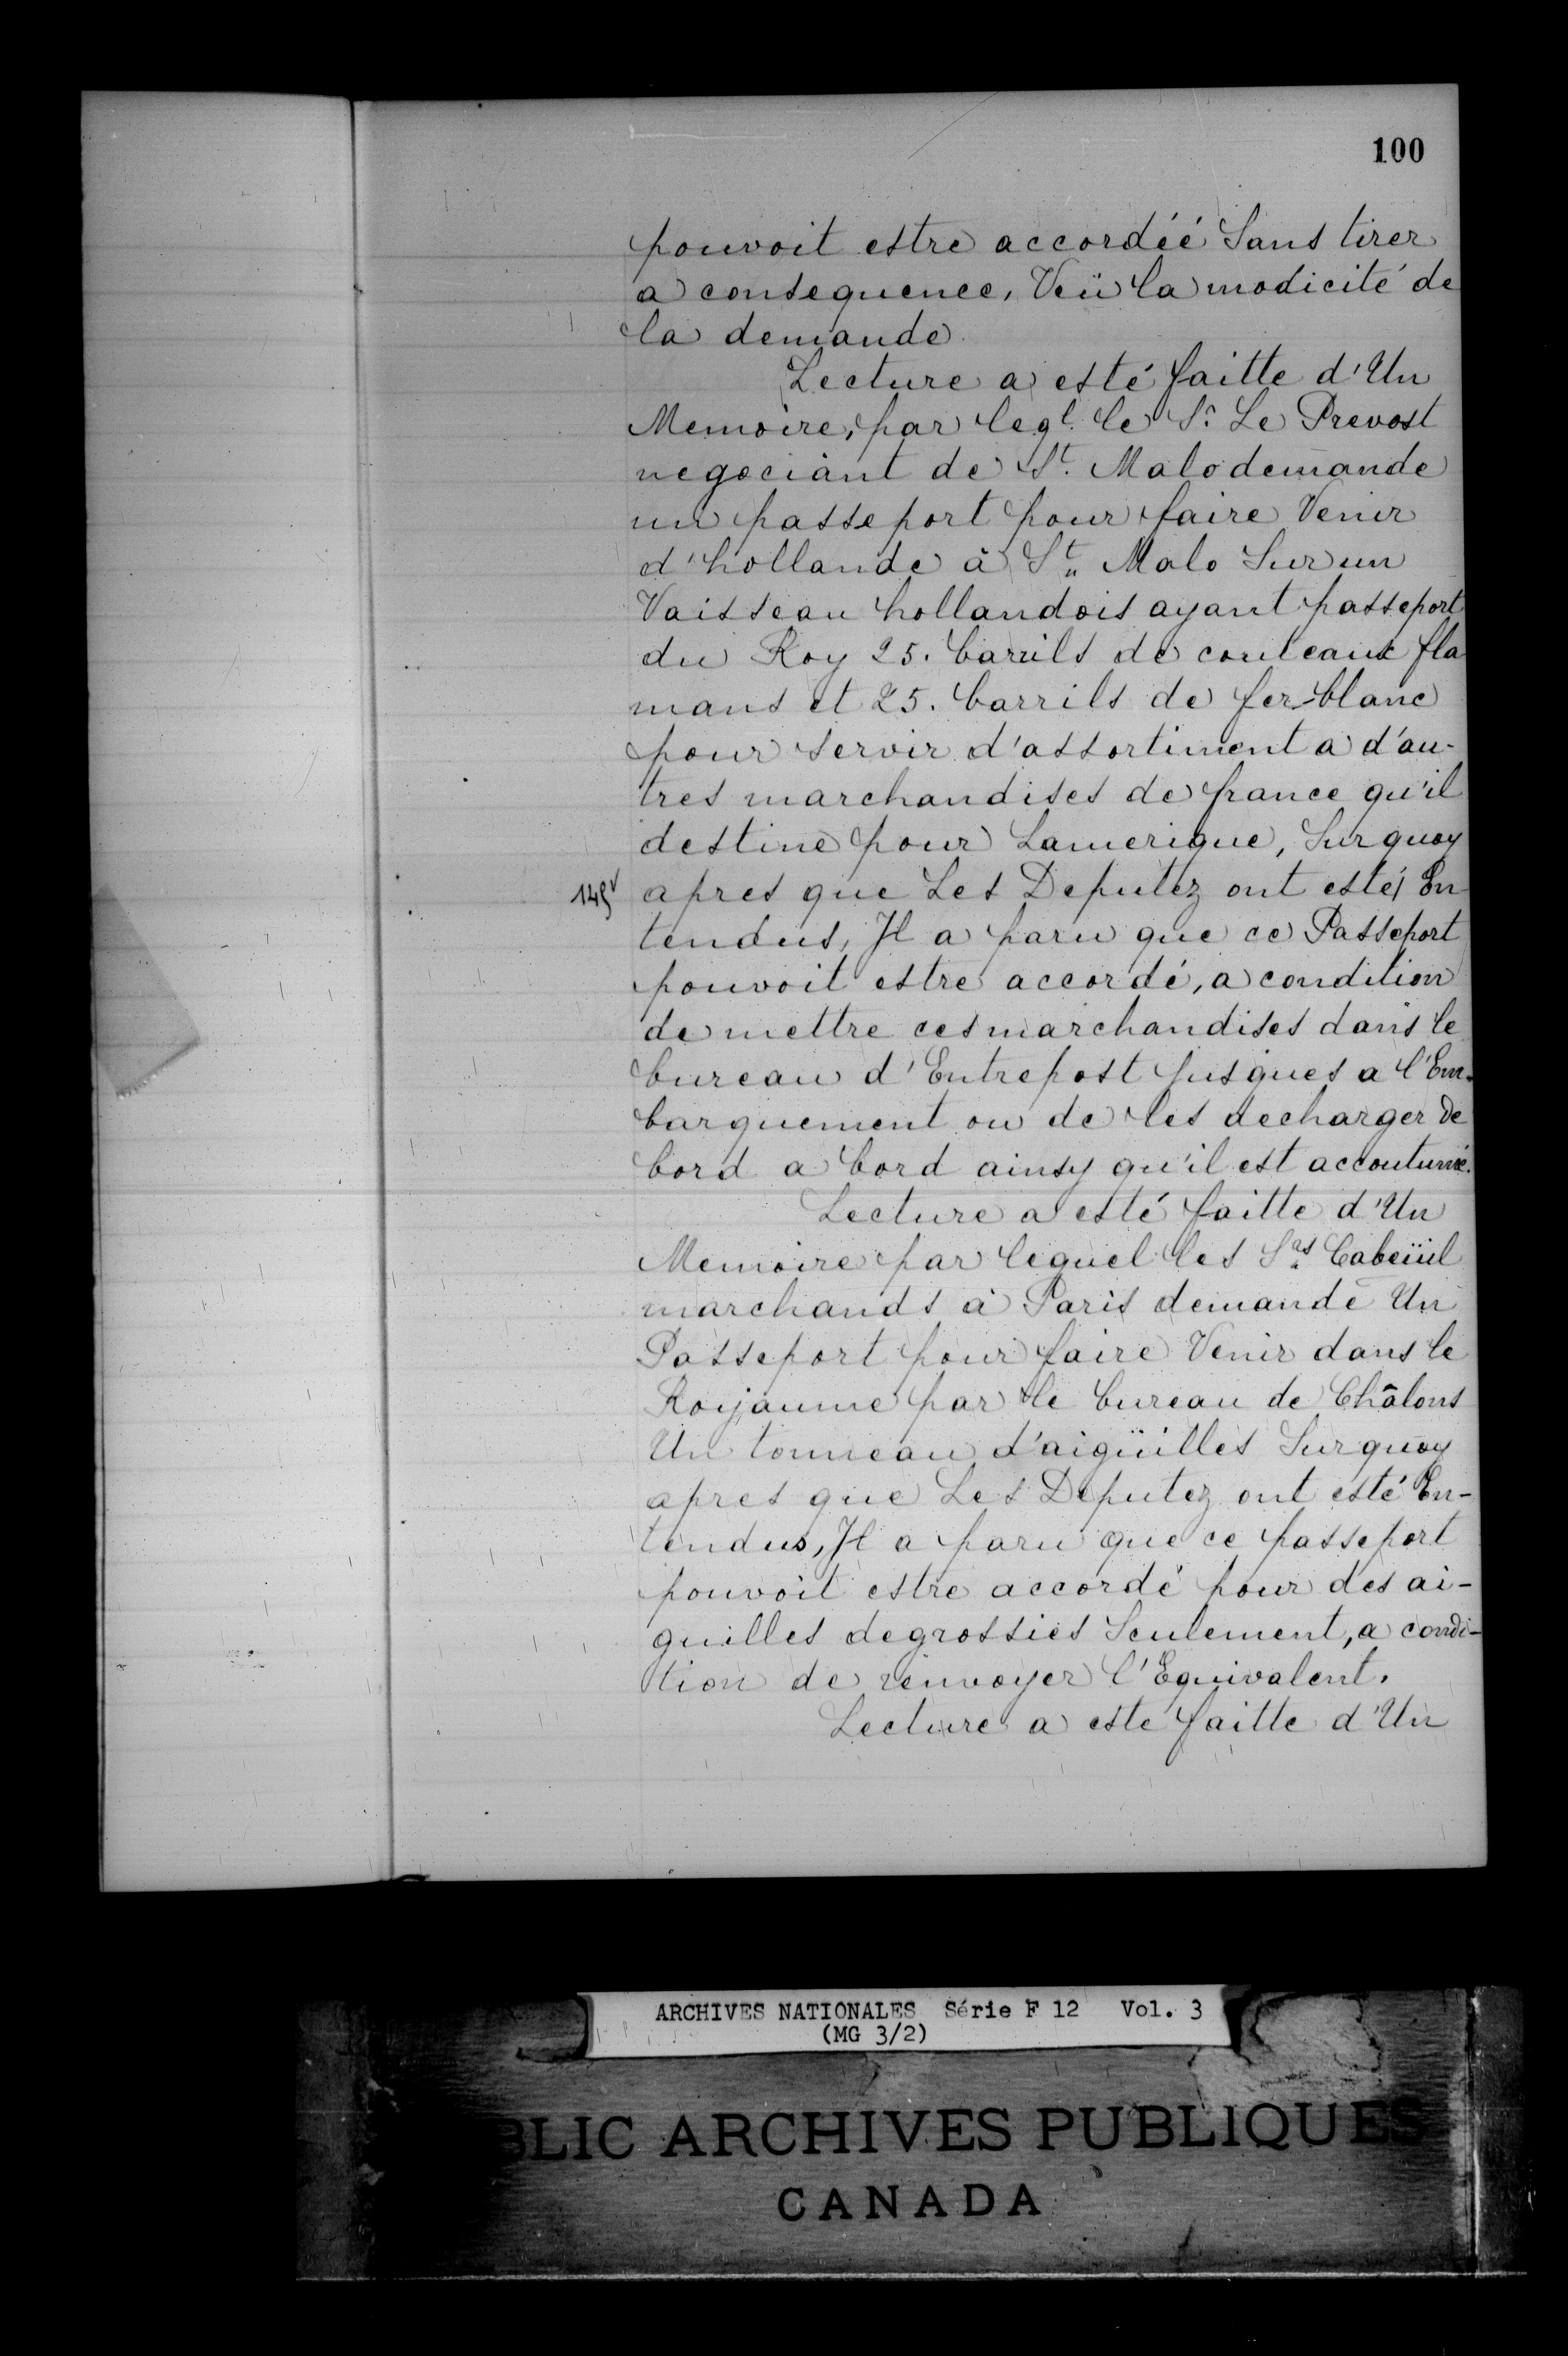 100
pouvoit estre accordéé Sans tirer
a consequence, Veü la modicité de
la demande
Lecture a esté faitte d'Un
Memoire, par leql. le Sr. Le Prevost
negociant de St. Malo demande
un passeport pour faire Venir
d'hollande à St. Malo Sur un
Vaisseau hollandois ayant passeport
du Roy 25. barrils de couteaux fla
mans et 25. barrils de fer-blanc
pour servir d'assortiment a d'au-
tres marchandises de france qu'il
destine pour Lamerique, Surquoy
149v apres que Les Deputez ont esté En
tendus, Il a paru que ce Passeport
pouvoit estre accordé, a condition
de mettre ces marchandises dans le
bureau d'Entrepost Jusques a l'Em-
barquement ou de les decharger de
bord a bord ainsy qu'il est accoutumé.
Lecture a esté faitte d'Un
Memoire par lequel les Srs Cabeüil
marchands à Paris demande Un
Passeport pour faire Venir dans le
Royaume par le bureau de Châlons
Un tonneau d'aigüilles Surquoy
apres que Les Deputez ont esté En-
tendus, Il a paru que ce passeport
pouvoit estre accordé pour des ai-
guilles degrossies Seulement, a condi-
tion de renvoyer l'Equivalent.
Lecture a esté faitte d'Un
ARCHIVES NATIONALES Série F 12 Vol. 3
(MG 3/2)
BLIC ARCHIVES PUBLIQUES
CANADA